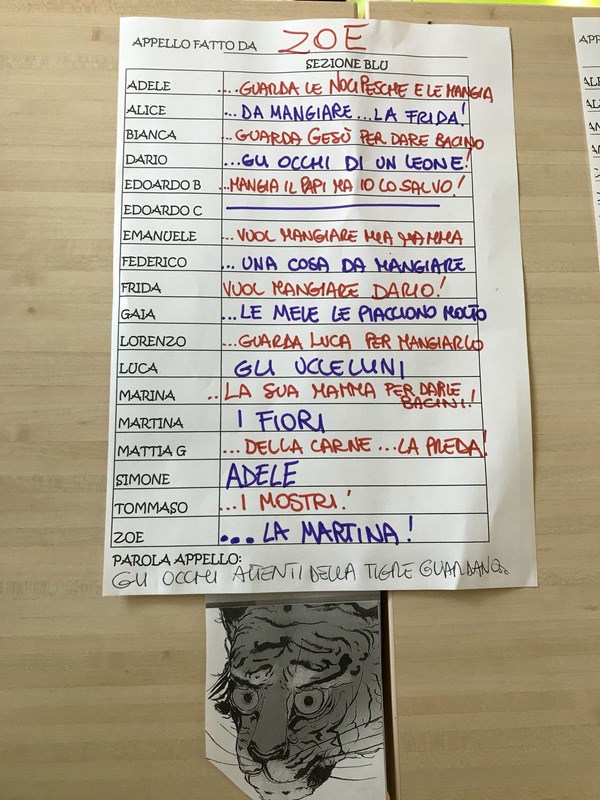 APPELLO FATTO DA ZOE
SEZIONE BLU
ADELE ...GUARDA LE NOCIPESCHE E LE MANGIA
ALICE ...DA MANGIARE...LA FRIDA!
BIANCA ...GUARDA GESÙ PER DARE BACINO
DARIO ...GLI OCCHI DI UN LEONE!
EDOARDO B ...MANGIA IL PAPI MA IO LO SALVO!
EDOARDO C
EMANUELE ...VUOL MANGIARE MIA MAMMA
FEDERICO ...UNA COSA DA MANGIARE
FRIDA VUOL MANGIARE DARIO!
GAIA ...LE MELE LE PIACCIONO MOLTO
LORENZO ...GUARDA LUCA PER MANGIARLO
LUCA GLI UCCELLINI
MARINA ..LA SUA MAMMA PER DARLE
BACINI!
MARTINA I FIORI
MATTIA G ...DELLA CARNE...LA PREDA!
SIMONE ADELE
TOMMASO ...I MOSTRI!
ZOE ...LA MARTINA!
PAROLA APPELLO:
GLI OCCHI ATTENTI DELLA TIGRE GUARDANO..